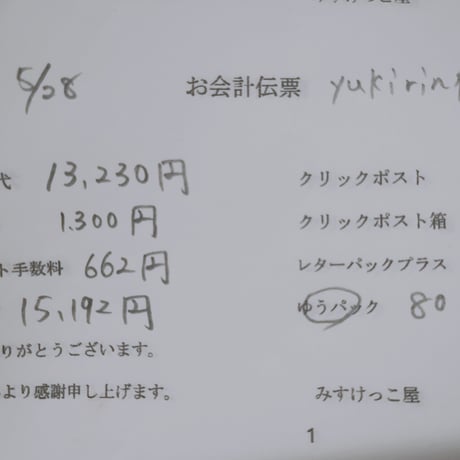 みすけっこ屋
5/28 お会計伝票 yukirin
代 13,230円 クリックポスト
1.300円 クリックポスト箱
ト手数料 662円 レターパックプラス
15,192円 ゆうパック 80
りがとうございます。
より感謝申し上げます。 みすけっこ屋
1